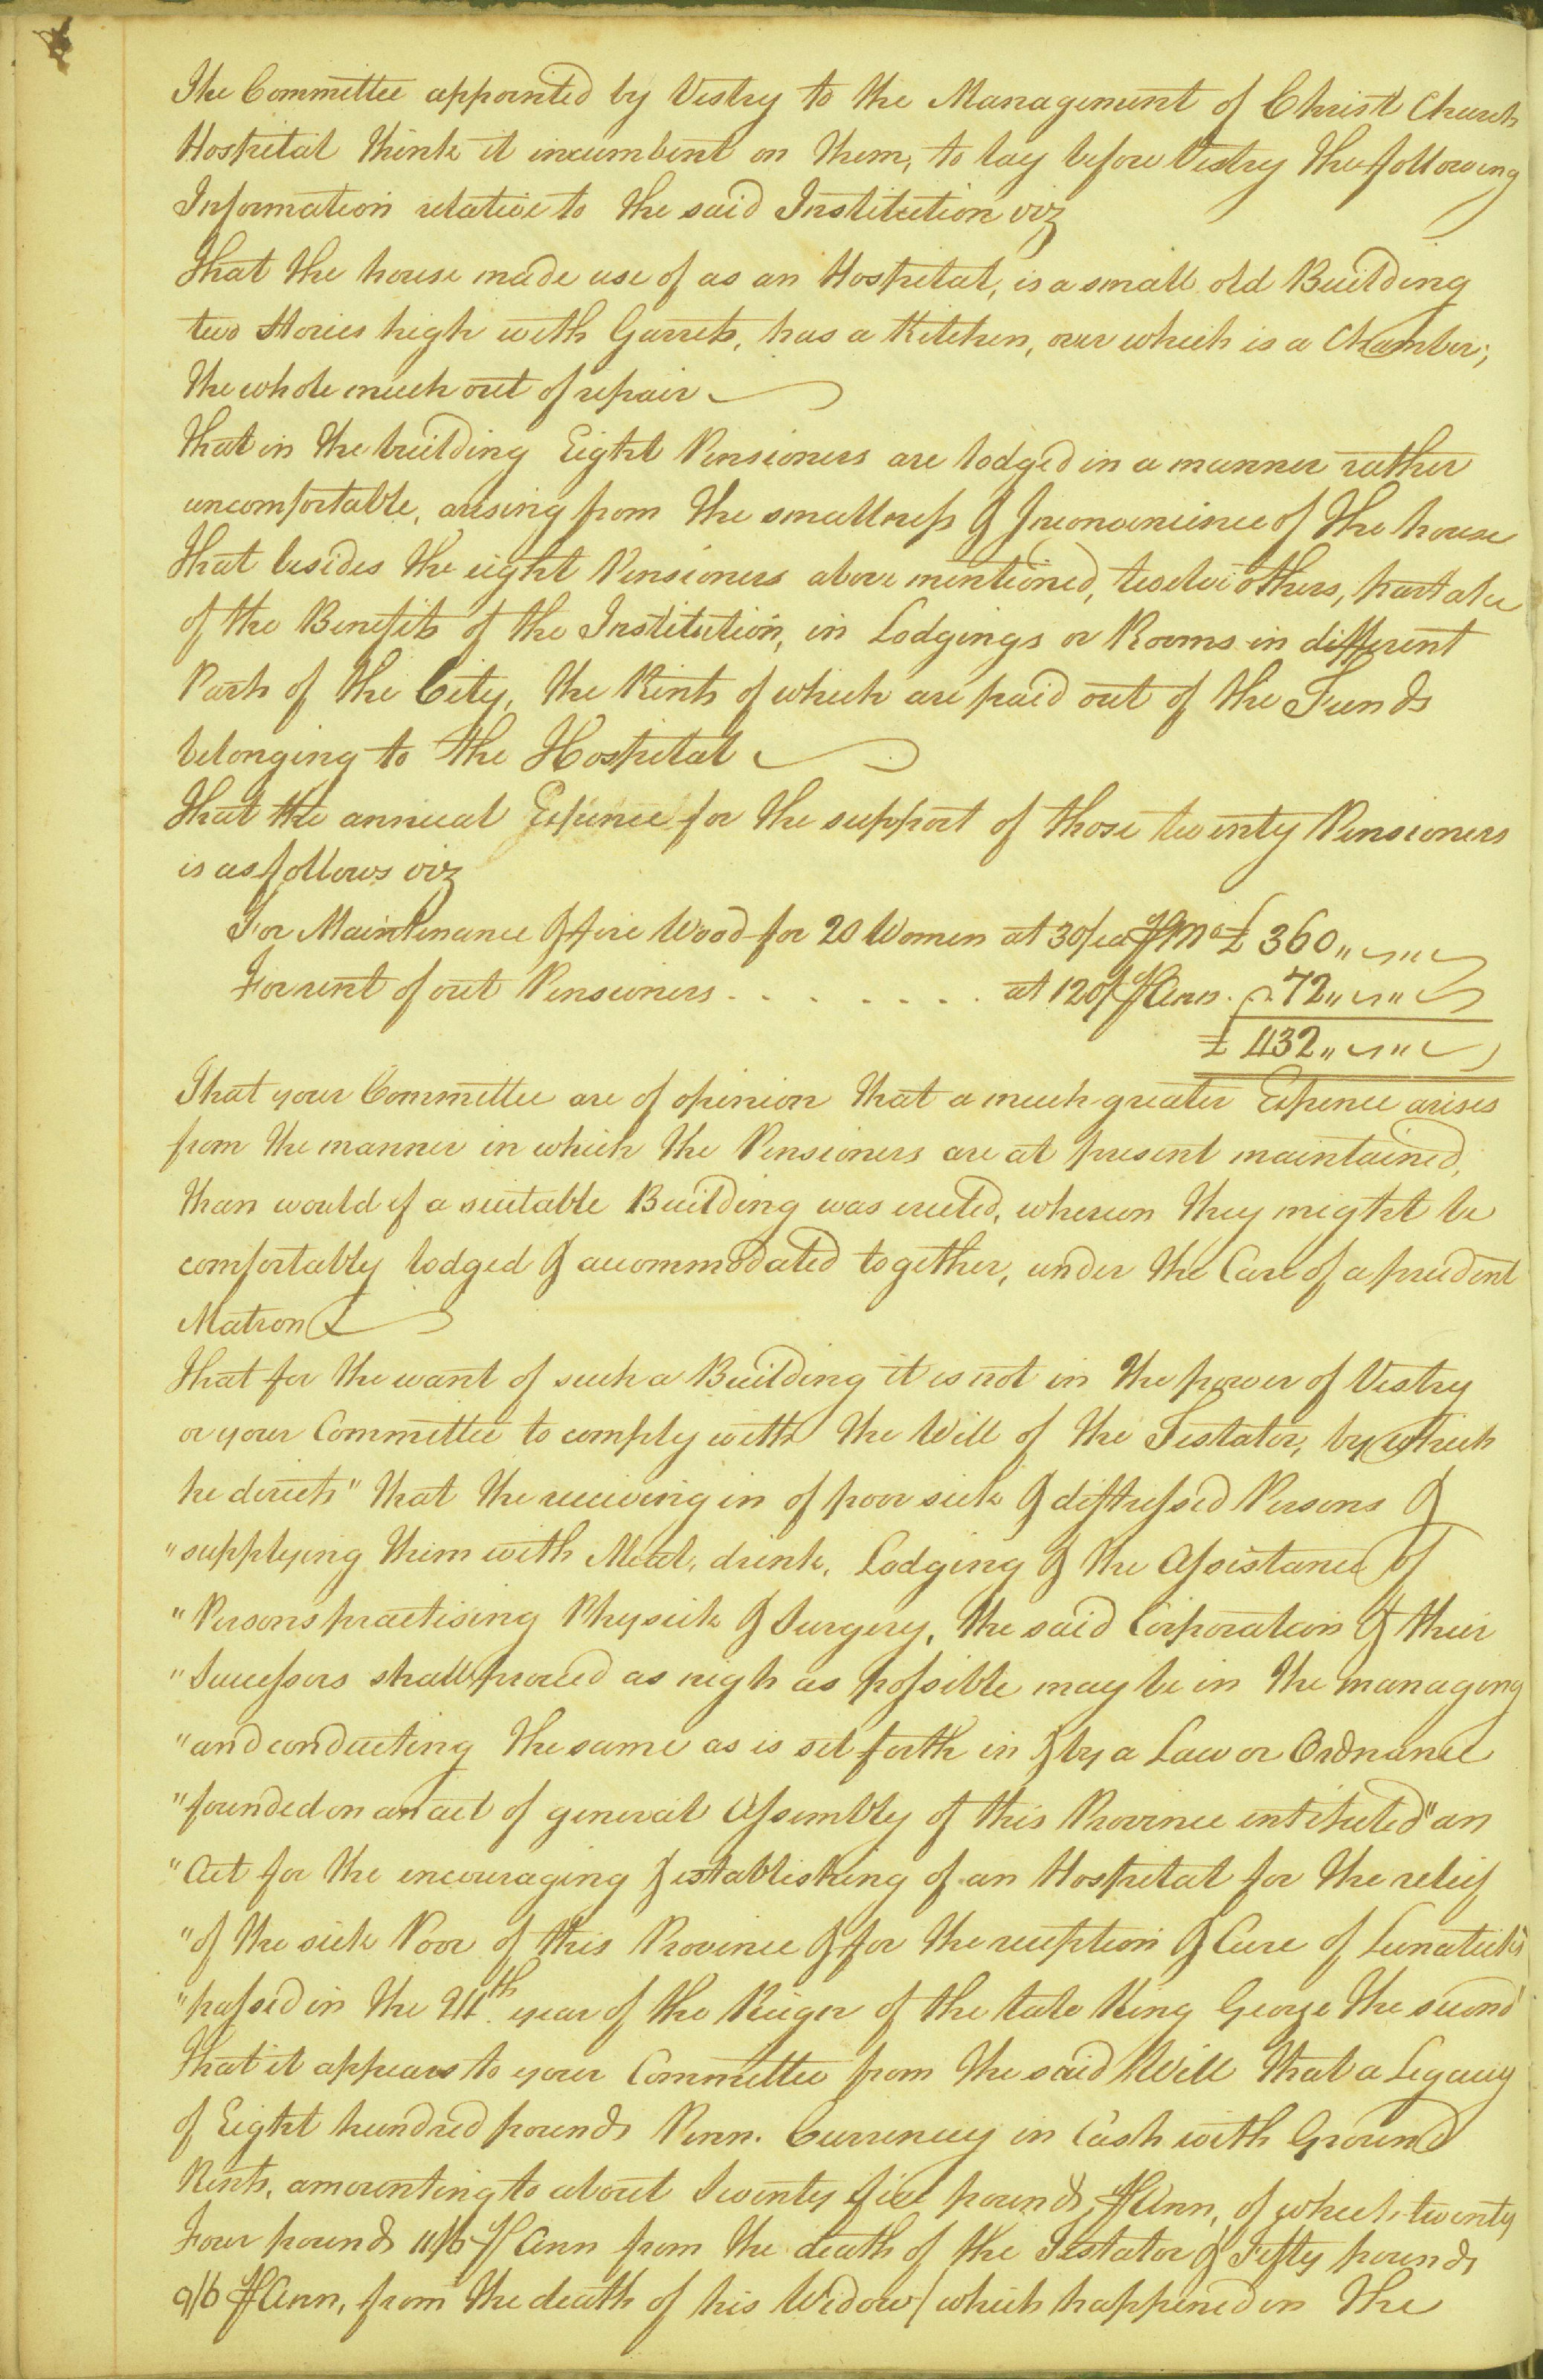 The Committee appointed by Vestry to the Management of Christ Church
Hospital think it incumbent on them, to lay before Vestry the following
Information relative to the said Institution viz
That the house made use of as an Hospital, is a small old Building
two Stories high with Garrets, has a Kitchen, over which is a Chamber;
the whole much out of repair
That in the building Eight Pensioners are lodged in a manner rather
uncomfortable, arising from the smallness & Inconvenience of the house
That besides the eight Pensioners above mentioned, twelve others, partake
of the Benefits of the Institution, in Lodgings or Rooms in different
Parts of the City, the Rents of which are paid out of the Funds
belonging to the Hospital
That the annual Expence for the support of those twenty Pensioners
is as follows viz
For Maintenance & fire Wood for 20 Women at 30/ ea ⅌ Mo £ 360 „ — „ —
For rent of out Pensioners . . . . . . . . at 120/ ⅌ Ann. 72 „ — „ —
£ 432 „ — „ —
That your Committee are of opinion that a much greater Expence arises
from the manner in which the Pensioners are at present maintained,
than would if a suitable Building was erected, wherein they might be
comfortably lodged & accommodated together, under the Care of a prudent
Matron
That for the want of such a Building it is not in the power of Vestry
or your Committee to comply with the Will of the Testator, by which
he directs "that the receiving in of poor sick & distressed Persons &
"supplying them with Meat, drink, Lodging & the Assistance of
"Persons practising Physick & Surgery, the said Corporation & their
"Successors shall proceed as nigh as possible may be in the managing
"and conducting the same as is set forth in & by a Law or Ordnance
"founded on an act of general Assembly of this Province intituled "an
"Act for the encouraging & establishing of an Hospital for the relief
"of the sick Poor of this Province & for the reception & Cure of Lunaticks"
"passed in the 24th. year of the Reign of the late King George the second"
That it appears to your Committee from the said Will that a Legacy
of Eight hundred pounds Penn. Currency in Cash with Ground
Rents, amounting to about Seventy five pounds ⅌ Ann, of which twenty
Four pounds 11/6 ⅌ Ann from the death of the Testator & Fifty pounds
9/6 ⅌ Ann, from the death of his Widow (which happened in the